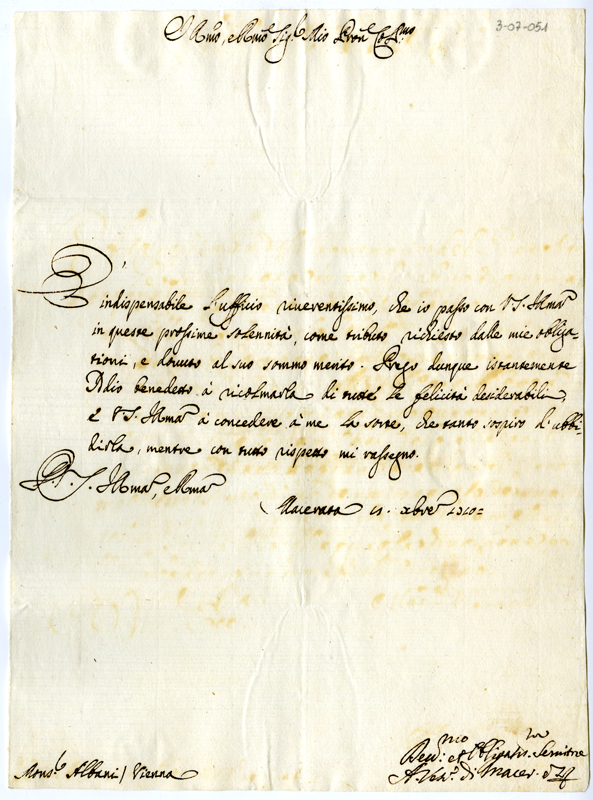 3-07-051
Illmo, e Rmo Sigr Mio Pron Colmo
È indispensabile l'uffizio riverentissimo, che io passo con V. S. Illma
in queste prossime solennità, come tributo richiesto dalle mie obliga-
tioni, e dovuto al suo sommo merito. Prego dunque istantemente
Iddio benedetto à ricolmarla di tutte le felicità desiderabili,
e V. S. Illma à concedere à me la sorte, che tanto sospiro d'ubbi-
dirla, mentre con tutto rispetto mi rassegno.
Di V. S. Illma, e Rma
Macerata 15. Xbre 1710=
Monsr Albani / Vienna
Devmo et Obligatis. Servitore
di Macer.